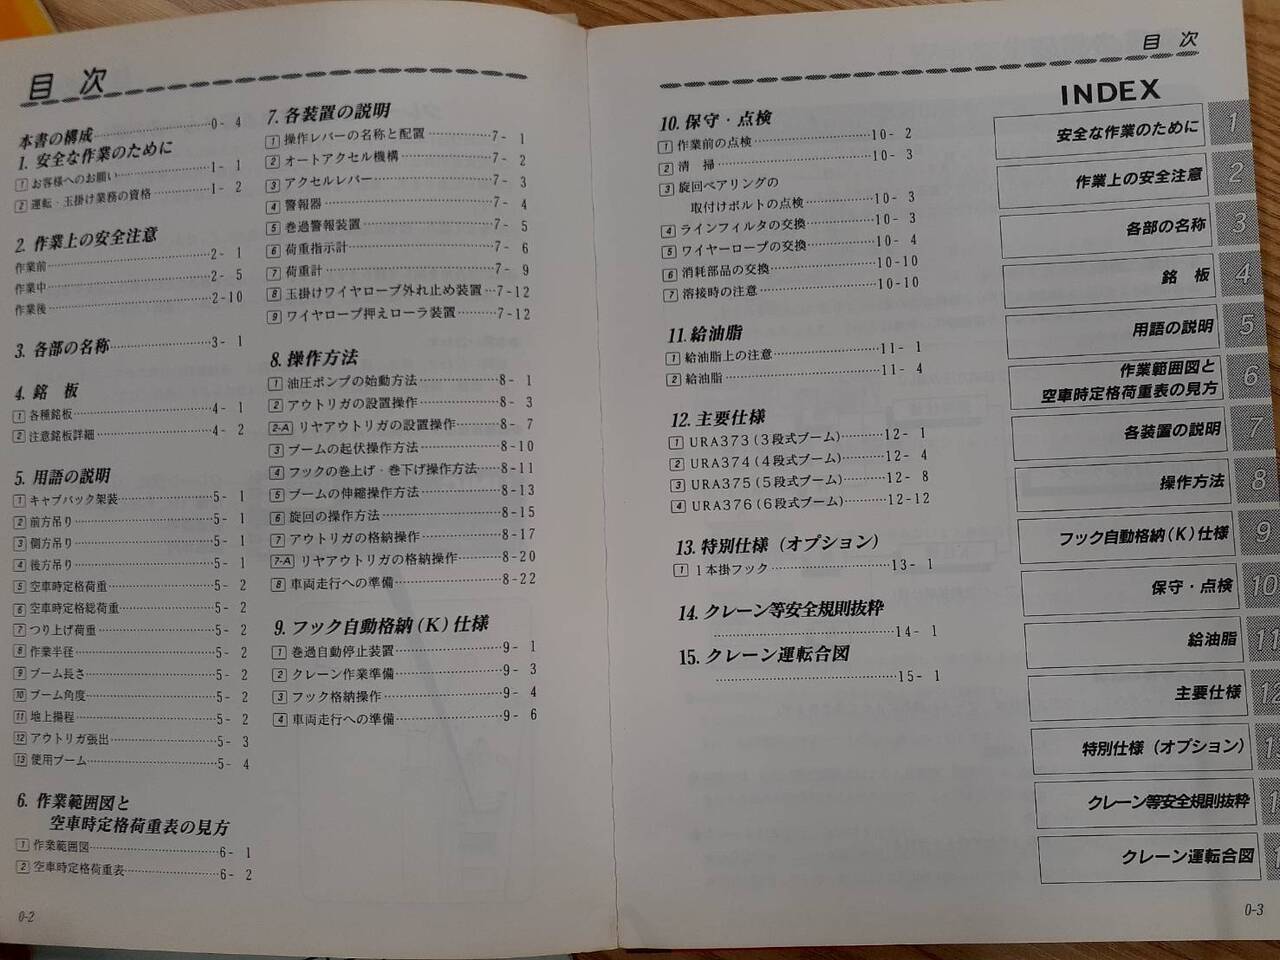 目 次
本書の構成 0- 4
1. 安全な作業のために
1 お客様へのお願い 1- 1
2 運転・玉掛け業務の資格 1- 2
2. 作業上の安全注意
作業前 2- 1
作業中 2- 5
作業後 2-10
3. 各部の名称 3- 1
4. 銘 板
1 各種銘板 4- 1
2 注意銘板詳細 4- 2
5. 用語の説明
1 キャブバック架装 5- 1
2 前方吊り 5- 1
3 側方吊り 5- 1
4 後方吊り 5- 1
5 空車時定格荷重 5- 2
6 空車時定格総荷重 5- 2
7 つり上げ荷重 5- 2
8 作業半径 5- 2
9 ブーム長さ 5- 2
10 ブーム角度 5- 2
11 地上揚程 5- 2
12 アウトリガ張出 5- 3
13 使用ブーム 5- 4
6. 作業範囲図と
空車時定格荷重表の見方
1 作業範囲図 6- 1
2 空車時定格荷重表 6- 2
0-2
7. 各装置の説明
1 操作レバーの名称と配置 7- 1
2 オートアクセル機構 7- 2
3 アクセルレバー 7- 3
4 警報器 7- 4
5 巻過警報装置 7- 5
6 荷重指示計 7- 6
7 荷重計 7- 9
8 玉掛けワイヤロープ外れ止め装置 7-12
9 ワイヤロープ押えローラ装置 7-12
8. 操作方法
1 油圧ポンプの始動方法 8- 1
2 アウトリガの設置操作 8- 3
2-A リヤアウトリガの設置操作 8- 7
3 ブームの起伏操作方法 8-10
4 フックの巻上げ・巻下げ操作方法 8-11
5 ブームの伸縮操作方法 8-13
6 旋回の操作方法 8-15
7 アウトリガの格納操作 8-17
7-A リヤアウトリガの格納操作 8-20
8 車両走行への準備 8-22
9. フック自動格納(K)仕様
1 巻過自動停止装置 9- 1
2 クレーン作業準備 9- 3
3 フック格納操作 9- 4
4 車両走行への準備 9- 6
目 次
10. 保守・点検
1 作業前の点検 10- 2
2 清 掃 10- 3
3 旋回ベアリングの
取付けボルトの点検 10- 3
4 ラインフィルタの交換 10- 3
5 ワイヤーロープの交換 10- 4
6 消耗部品の交換 10-10
7 溶接時の注意 10-10
11. 給油脂
1 給油脂上の注意 11- 1
2 給油脂 11- 4
12. 主要仕様
1 URA373(3段式ブーム) 12- 1
2 URA374(4段式ブーム) 12- 4
3 URA375(5段式ブーム) 12- 8
4 URA376(6段式ブーム) 12-12
13. 特別仕様(オプション)
1 1本掛フック 13- 1
14. クレーン等安全規則抜粋
14- 1
15. クレーン運転合図
15- 1
INDEX
安全な作業のために 1
作業上の安全注意 2
各部の名称 3
銘 板 4
用語の説明 5
作業範囲図と
空車時定格荷重表の見方 6
各装置の説明 7
操作方法 8
フック自動格納(K)仕様 9
保守・点検 10
給油脂 11
主要仕様 12
特別仕様(オプション)
クレーン等安全規則抜粋
クレーン運転合図
0-3